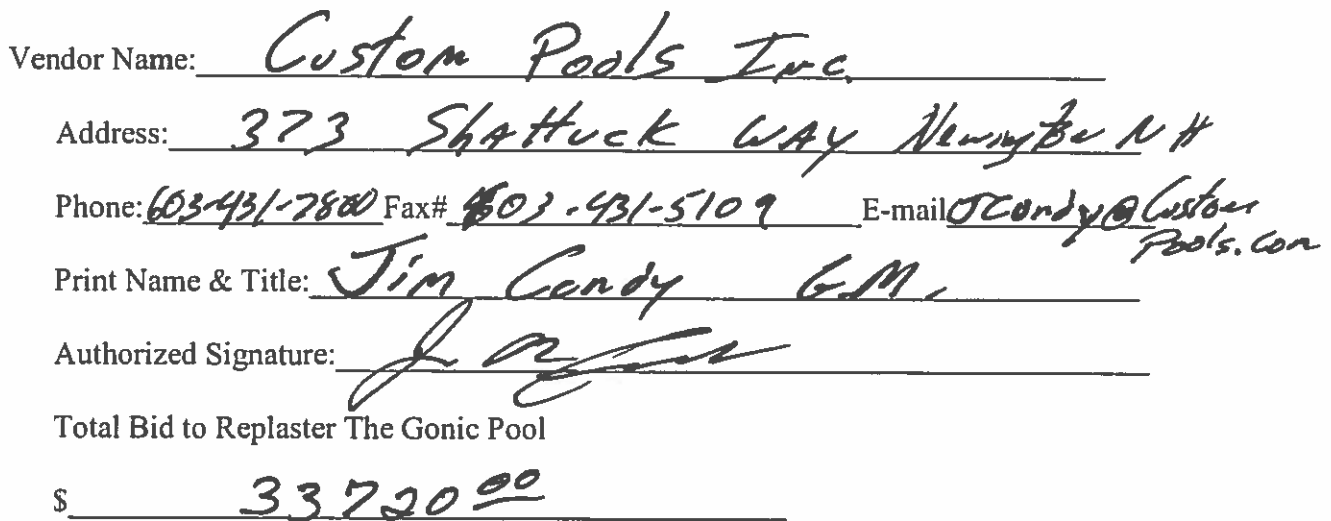 Vendor Name: Custom Pools Inc.
Address: 373 Shattuck Way Newington NH
Phone: 603-431-7800 Fax# 603-431-5109 E-mail JCondy@Custom
Pools.com
Print Name & Title: Jim Condy G.M.
Authorized Signature:
Total Bid to Replaster The Gonic Pool
$ 33720 00